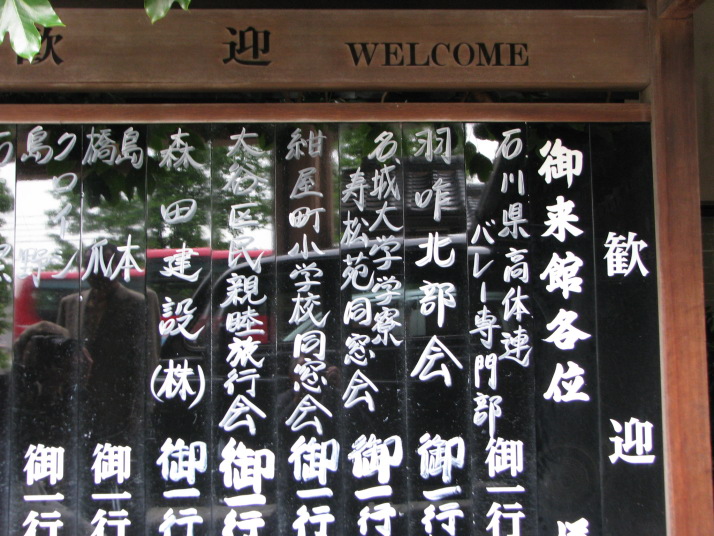 歓迎 WELCOME
歓迎
御来館各位
石川県高体連
バレー専門部
御一行
羽咋北部会
御一行
名城大学学寮
寿松苑同窓会
御一行
紺屋町小学校同窓会
御一行
大谷区民親睦旅行会
御一行
森田建設(株)
御一行
島本
橋爪
御一行
クロイン
島野
御一行